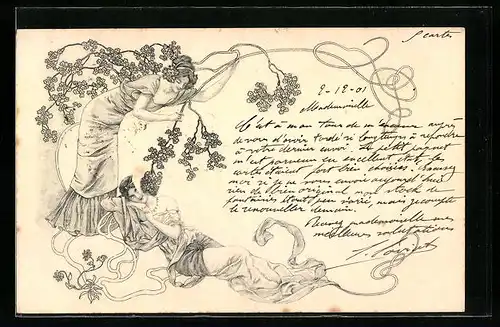 8 cartes
2-12-01
Mademoiselle
C'est à mon tour de m'excuser auprès
de vous d'avoir tardé si longtemps à répondre
à votre dernier envoi. Le petit paquet
m'est parvenu en excellent état, les
cartes étaient fort bien choisies. Excusez
moi si je ne vous envoie aujourd'hui
rien de bien original mon stock de
fantaisies étant peu varié, mais je compte
le renouveler demain.
Recevez mademoiselle mes
meilleures salutations